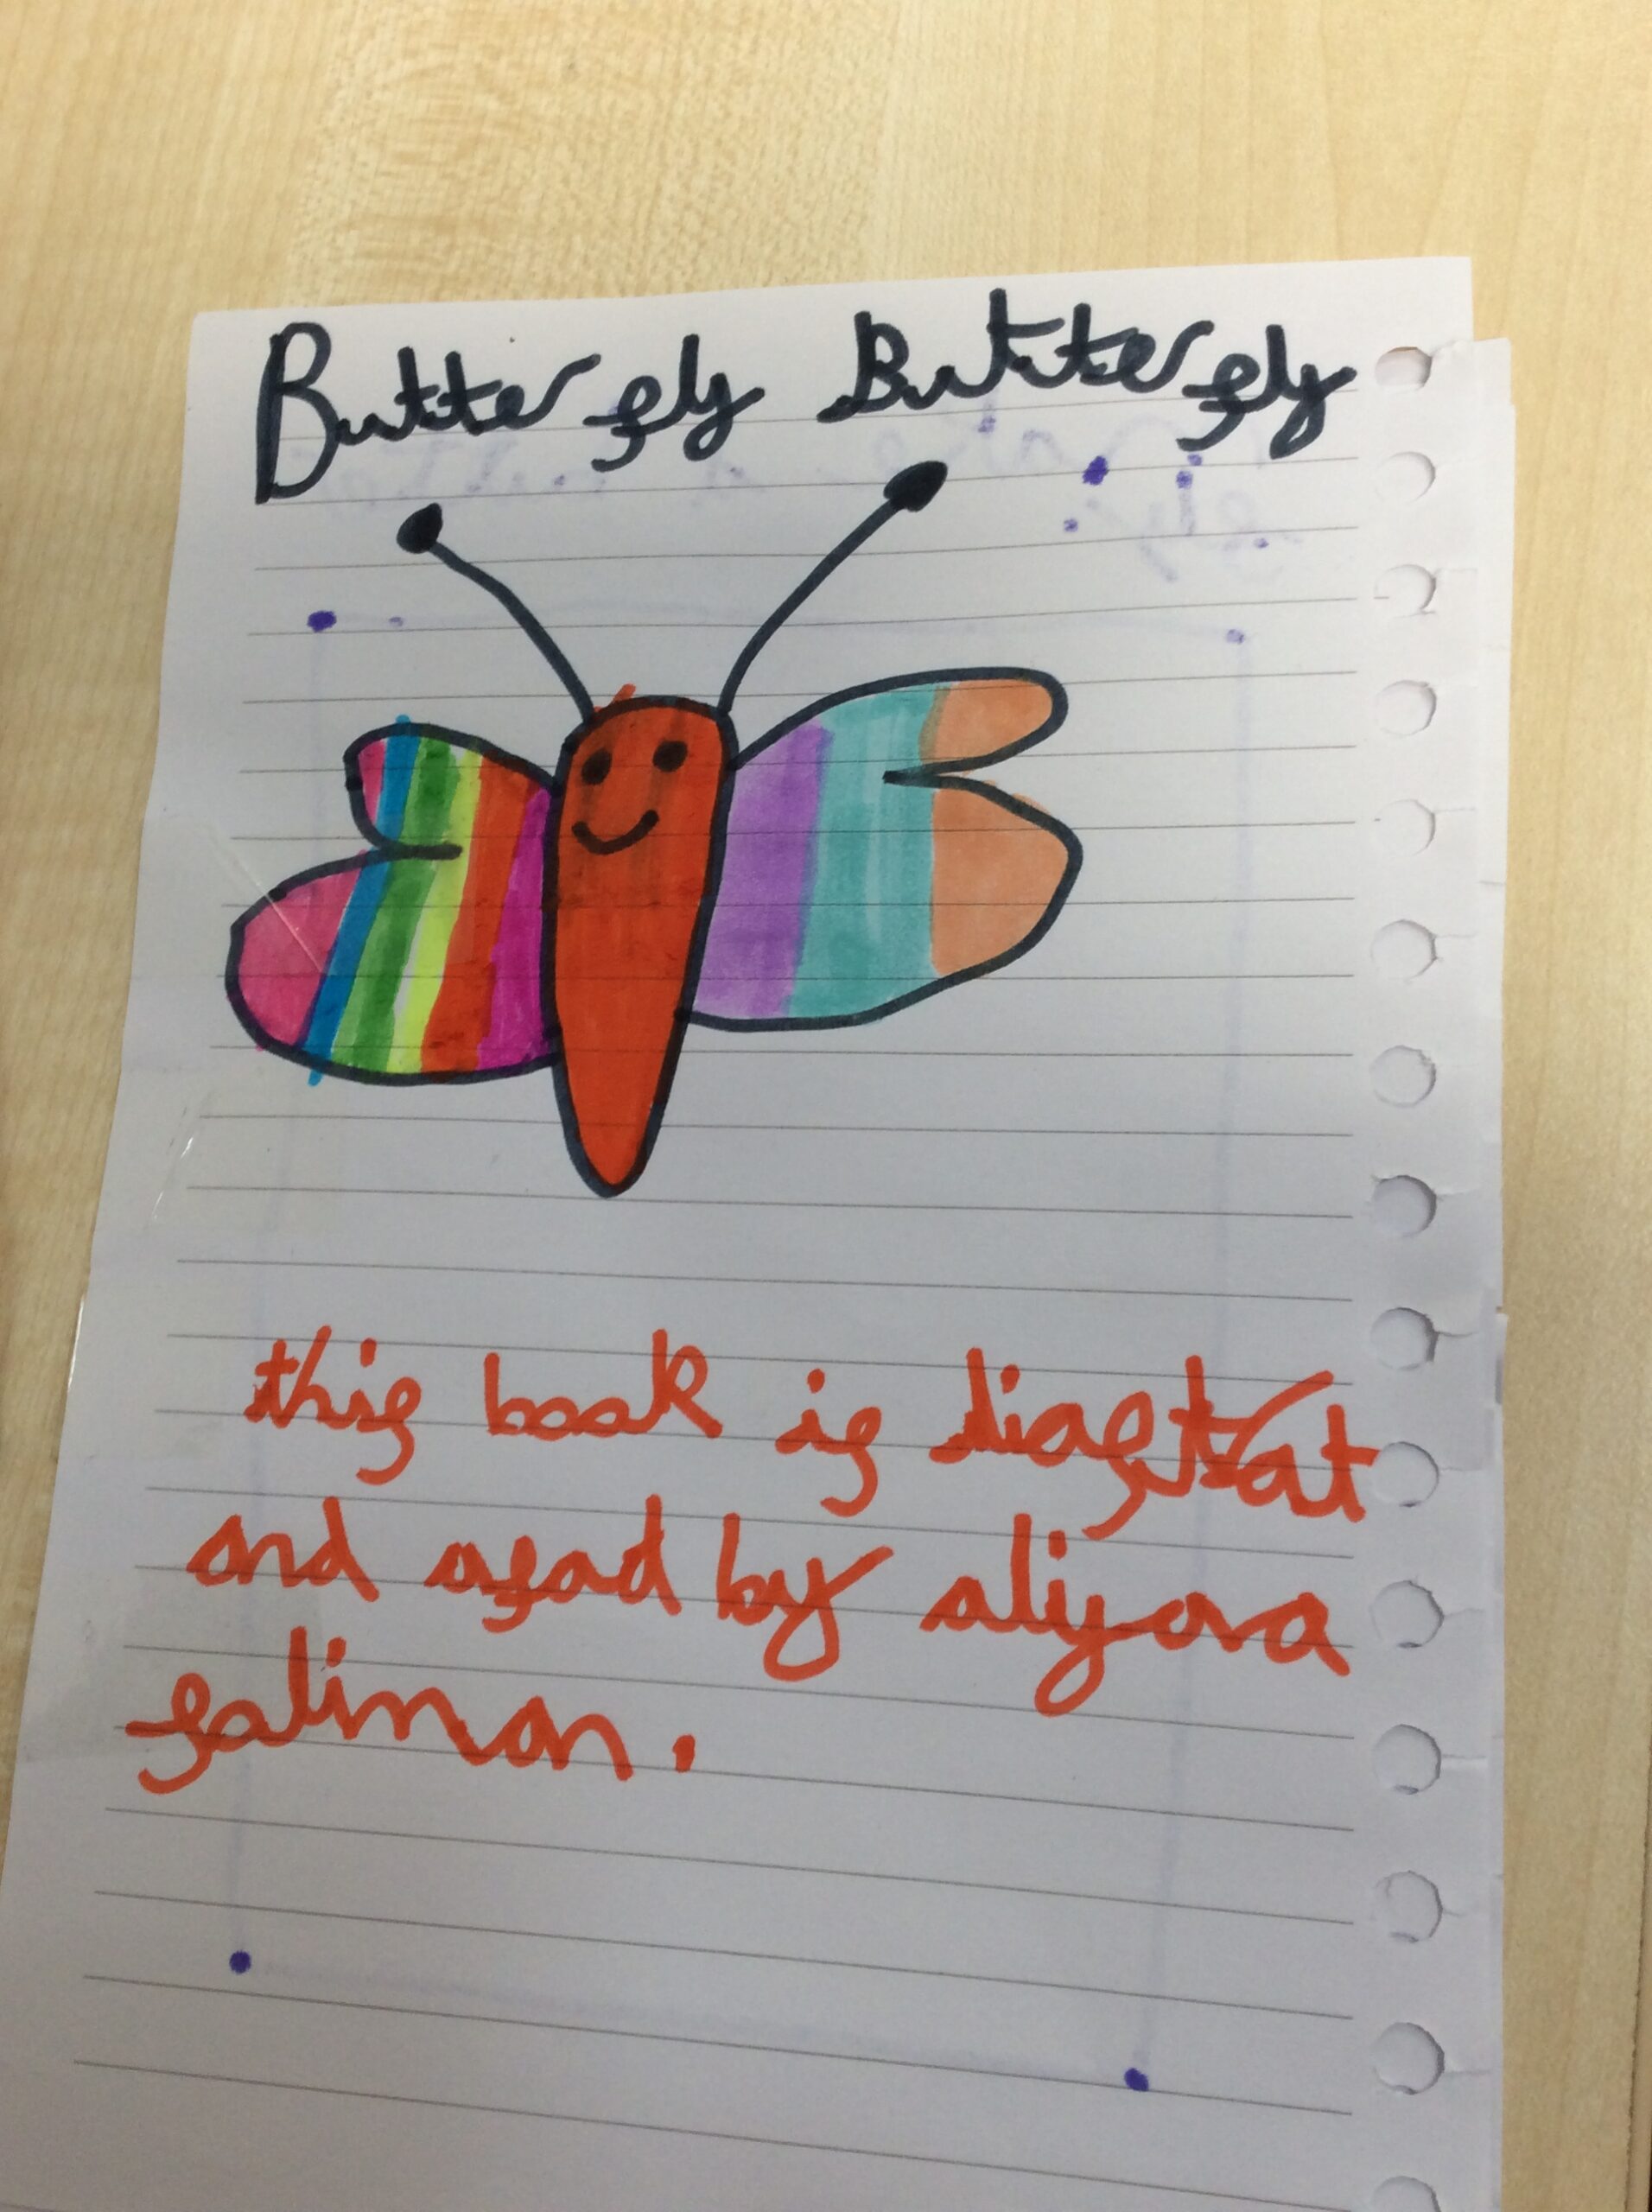 Butterfly Butterfly
this book is liastrat
and asad by aliyana
salinan.